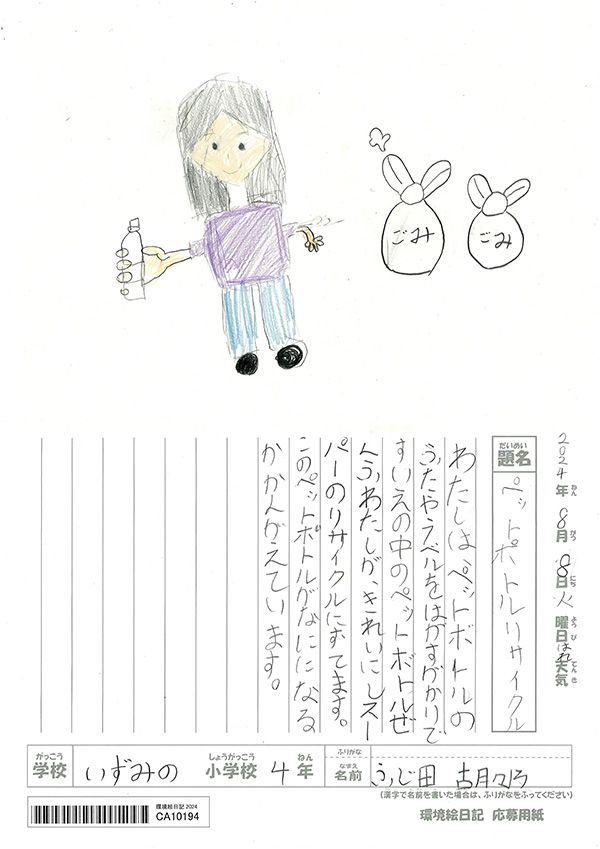 ごみ
ごみ
2024年ねん 8月がつ 8日にち 火曜日ようび はれ天気てんき
だいめい
題名 ペットボトルリサイクル
わたしは、ペットボトルの
ふたやラベルをはがすがかりで
すいえの中のペットボトルぜ
んぶわたしが、きれいにしスー
パーのリサイクルにすてます。
このペットボトルがなにになる
かかんがえています。
がっこう しょうがっこう ねん ふりがな
学校 いずみの 小学校 4年 なまえ 名前 ふじ田
(漢字で名前を書いた場合は、ふりがなをふってください)
環境絵日記 2024
CA10194
環境絵日記 応募用紙